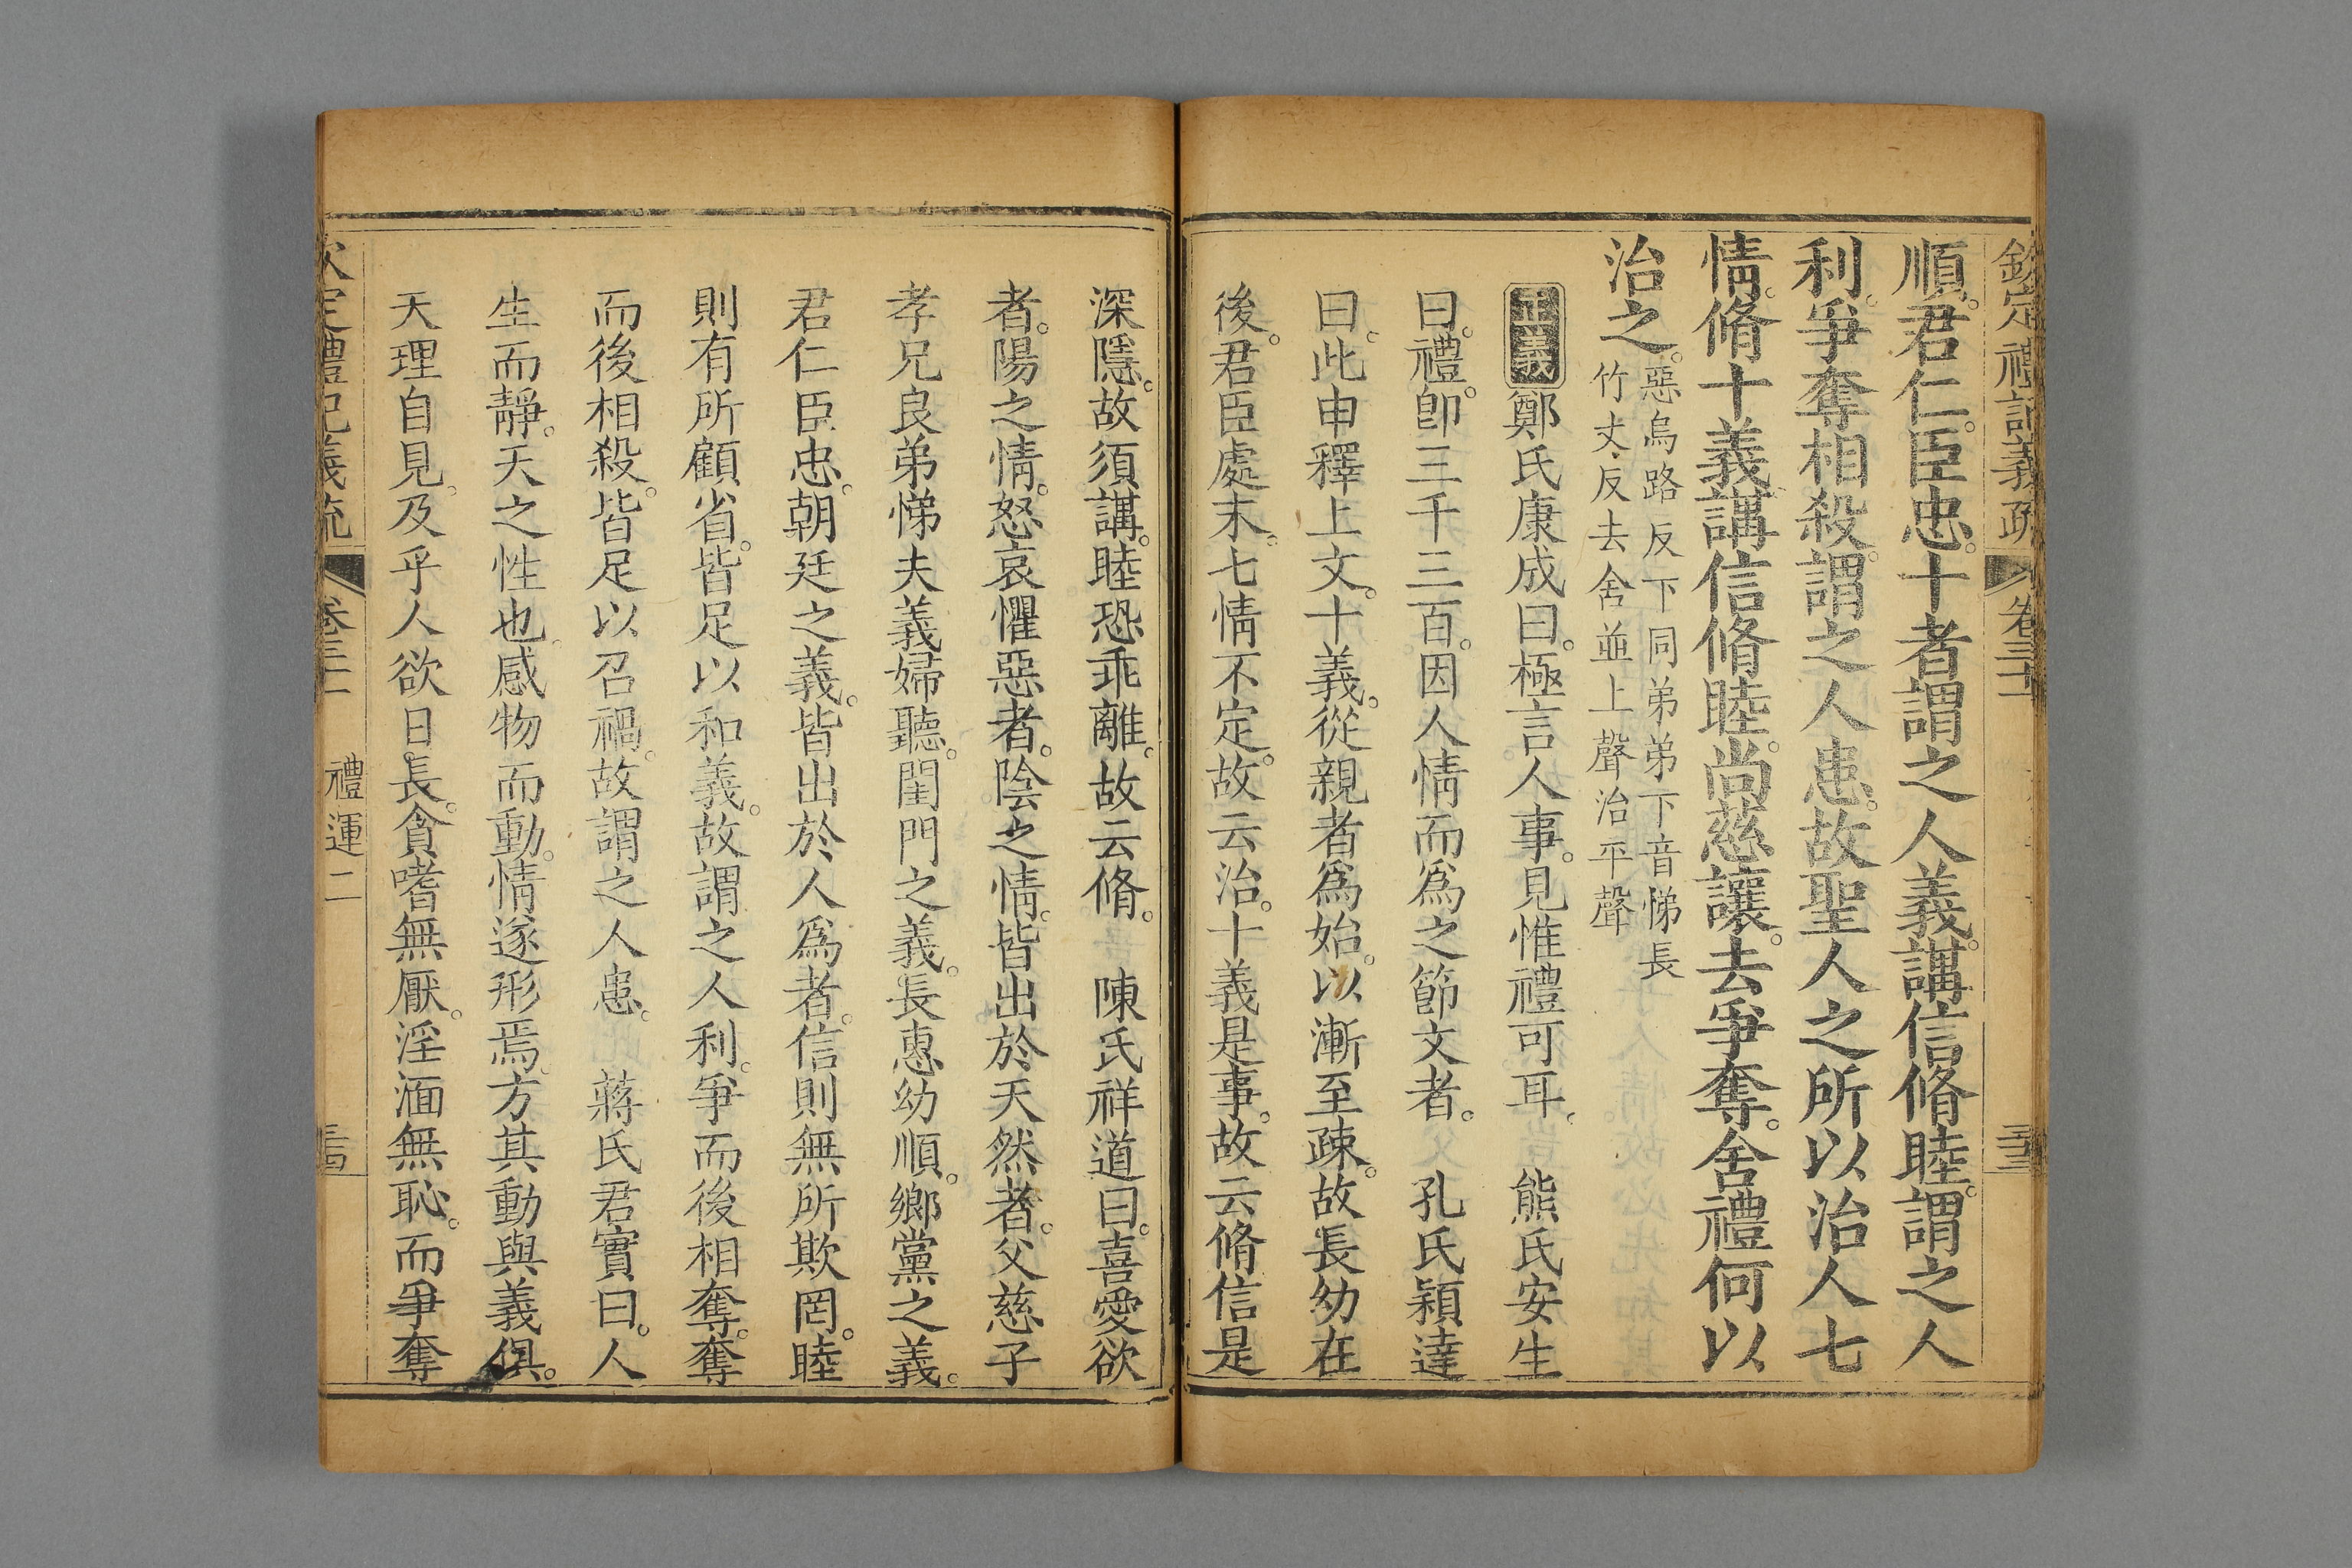 欽定禮記義疏 卷三十一 三十三
順。君仁。臣忠。十者謂之人義。講信脩睦。謂之人
利。爭奪相殺。謂之人患。故聖人之所以治人七
情。脩十義。講信脩睦。尚慈讓。去爭奪。舍禮何以
治之。
惡烏路反下同弟弟下音悌長
竹丈反去舍並上聲治平聲
正義鄭氏康成曰。極言人事。見惟禮可耳。 熊氏安生
曰。禮。卽三千三百。因人情而爲之節文者。 孔氏穎達
曰。此申釋上文。十義。從親者爲始。以漸至疎。故長幼在
後。君臣處末。七情不定。故云治。十義是事。故云脩信是
深隱。故須講。睦恐乖離。故云脩。 陳氏祥道曰。喜愛欲
者。陽之情。怒哀懼惡者。陰之情。皆出於天然者。父慈子
孝兄良弟悌夫義婦聽。閨門之義。長惠幼順。鄉黨之義。
君仁臣忠。朝廷之義。皆出於人爲者。信則無所欺罔。睦
則有所顧省。皆足以和義。故謂之人利。爭而後相奪。奪
而後相殺。皆足以召禍。故謂之人患。 蔣氏君實曰。人
生而靜。天之性也。感物而動。情遂形焉。方其動與義俱。
天理自見。及乎人欲日長。貪嗜無厭。淫湎無恥。而爭奪
欽定禮記義疏 卷三十一 禮運二 三十四